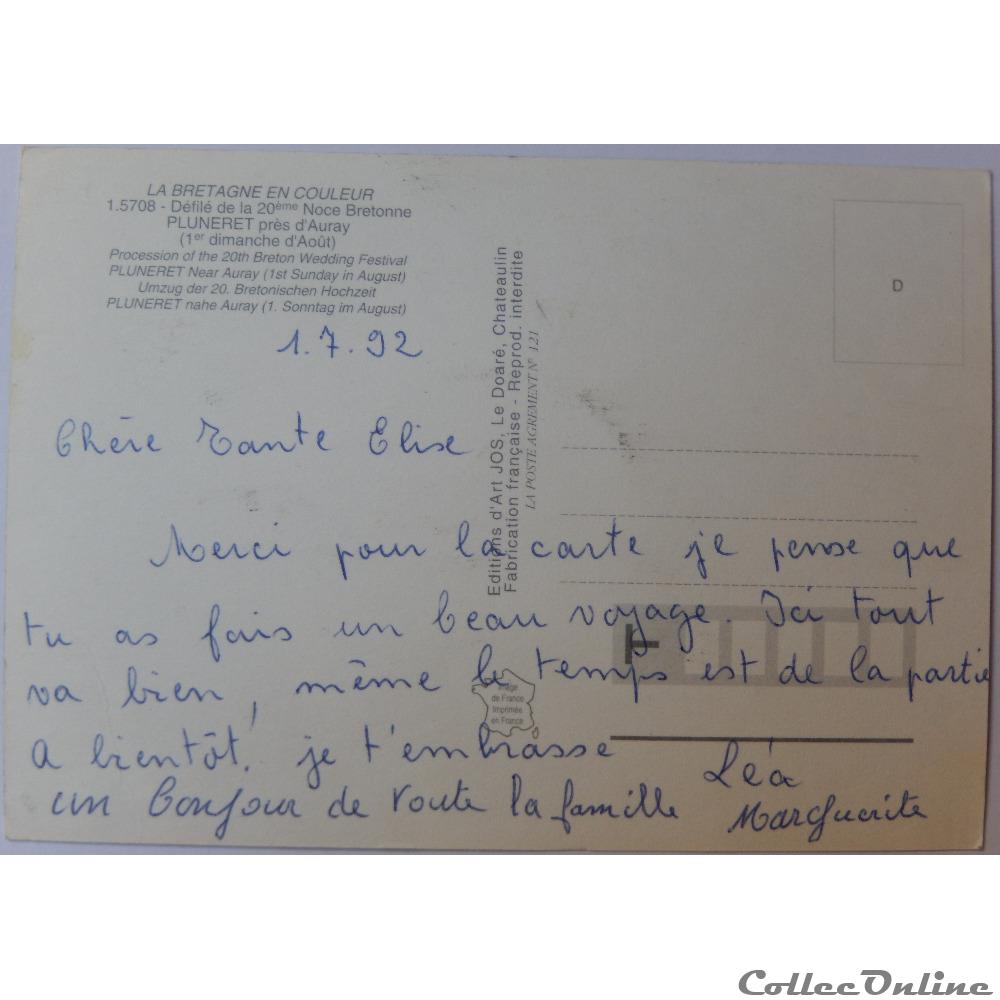 LA BRETAGNE EN COULEUR
1.5708 - Défilé de la 20ème Noce Bretonne
PLUNERET près d'Auray
(1er dimanche d'Août)
Procession of the 20th Breton Wedding Festival
PLUNERET Near Auray (1st Sunday in August)
Umzug der 20. Bretonischen Hochzeit
PLUNERET nahe Auray (1. Sonntag im August)
Editions d'Art JOS, Le Doaré, Chateaulin
Fabrication française - Reprod. interdite
LA POSTE AGREMENT N° 121
D
1.7.92
Chère Tante Elise
Merci pour la carte je pense que
tu as fais un beau voyage. Ici tout
va bien, même le temps est de la partie
A bientôt. je t'embrasse
Léa
un bonjour de toute la famille
Marguerite
T
Image
de France
Imprimée
en France
CollecOnline